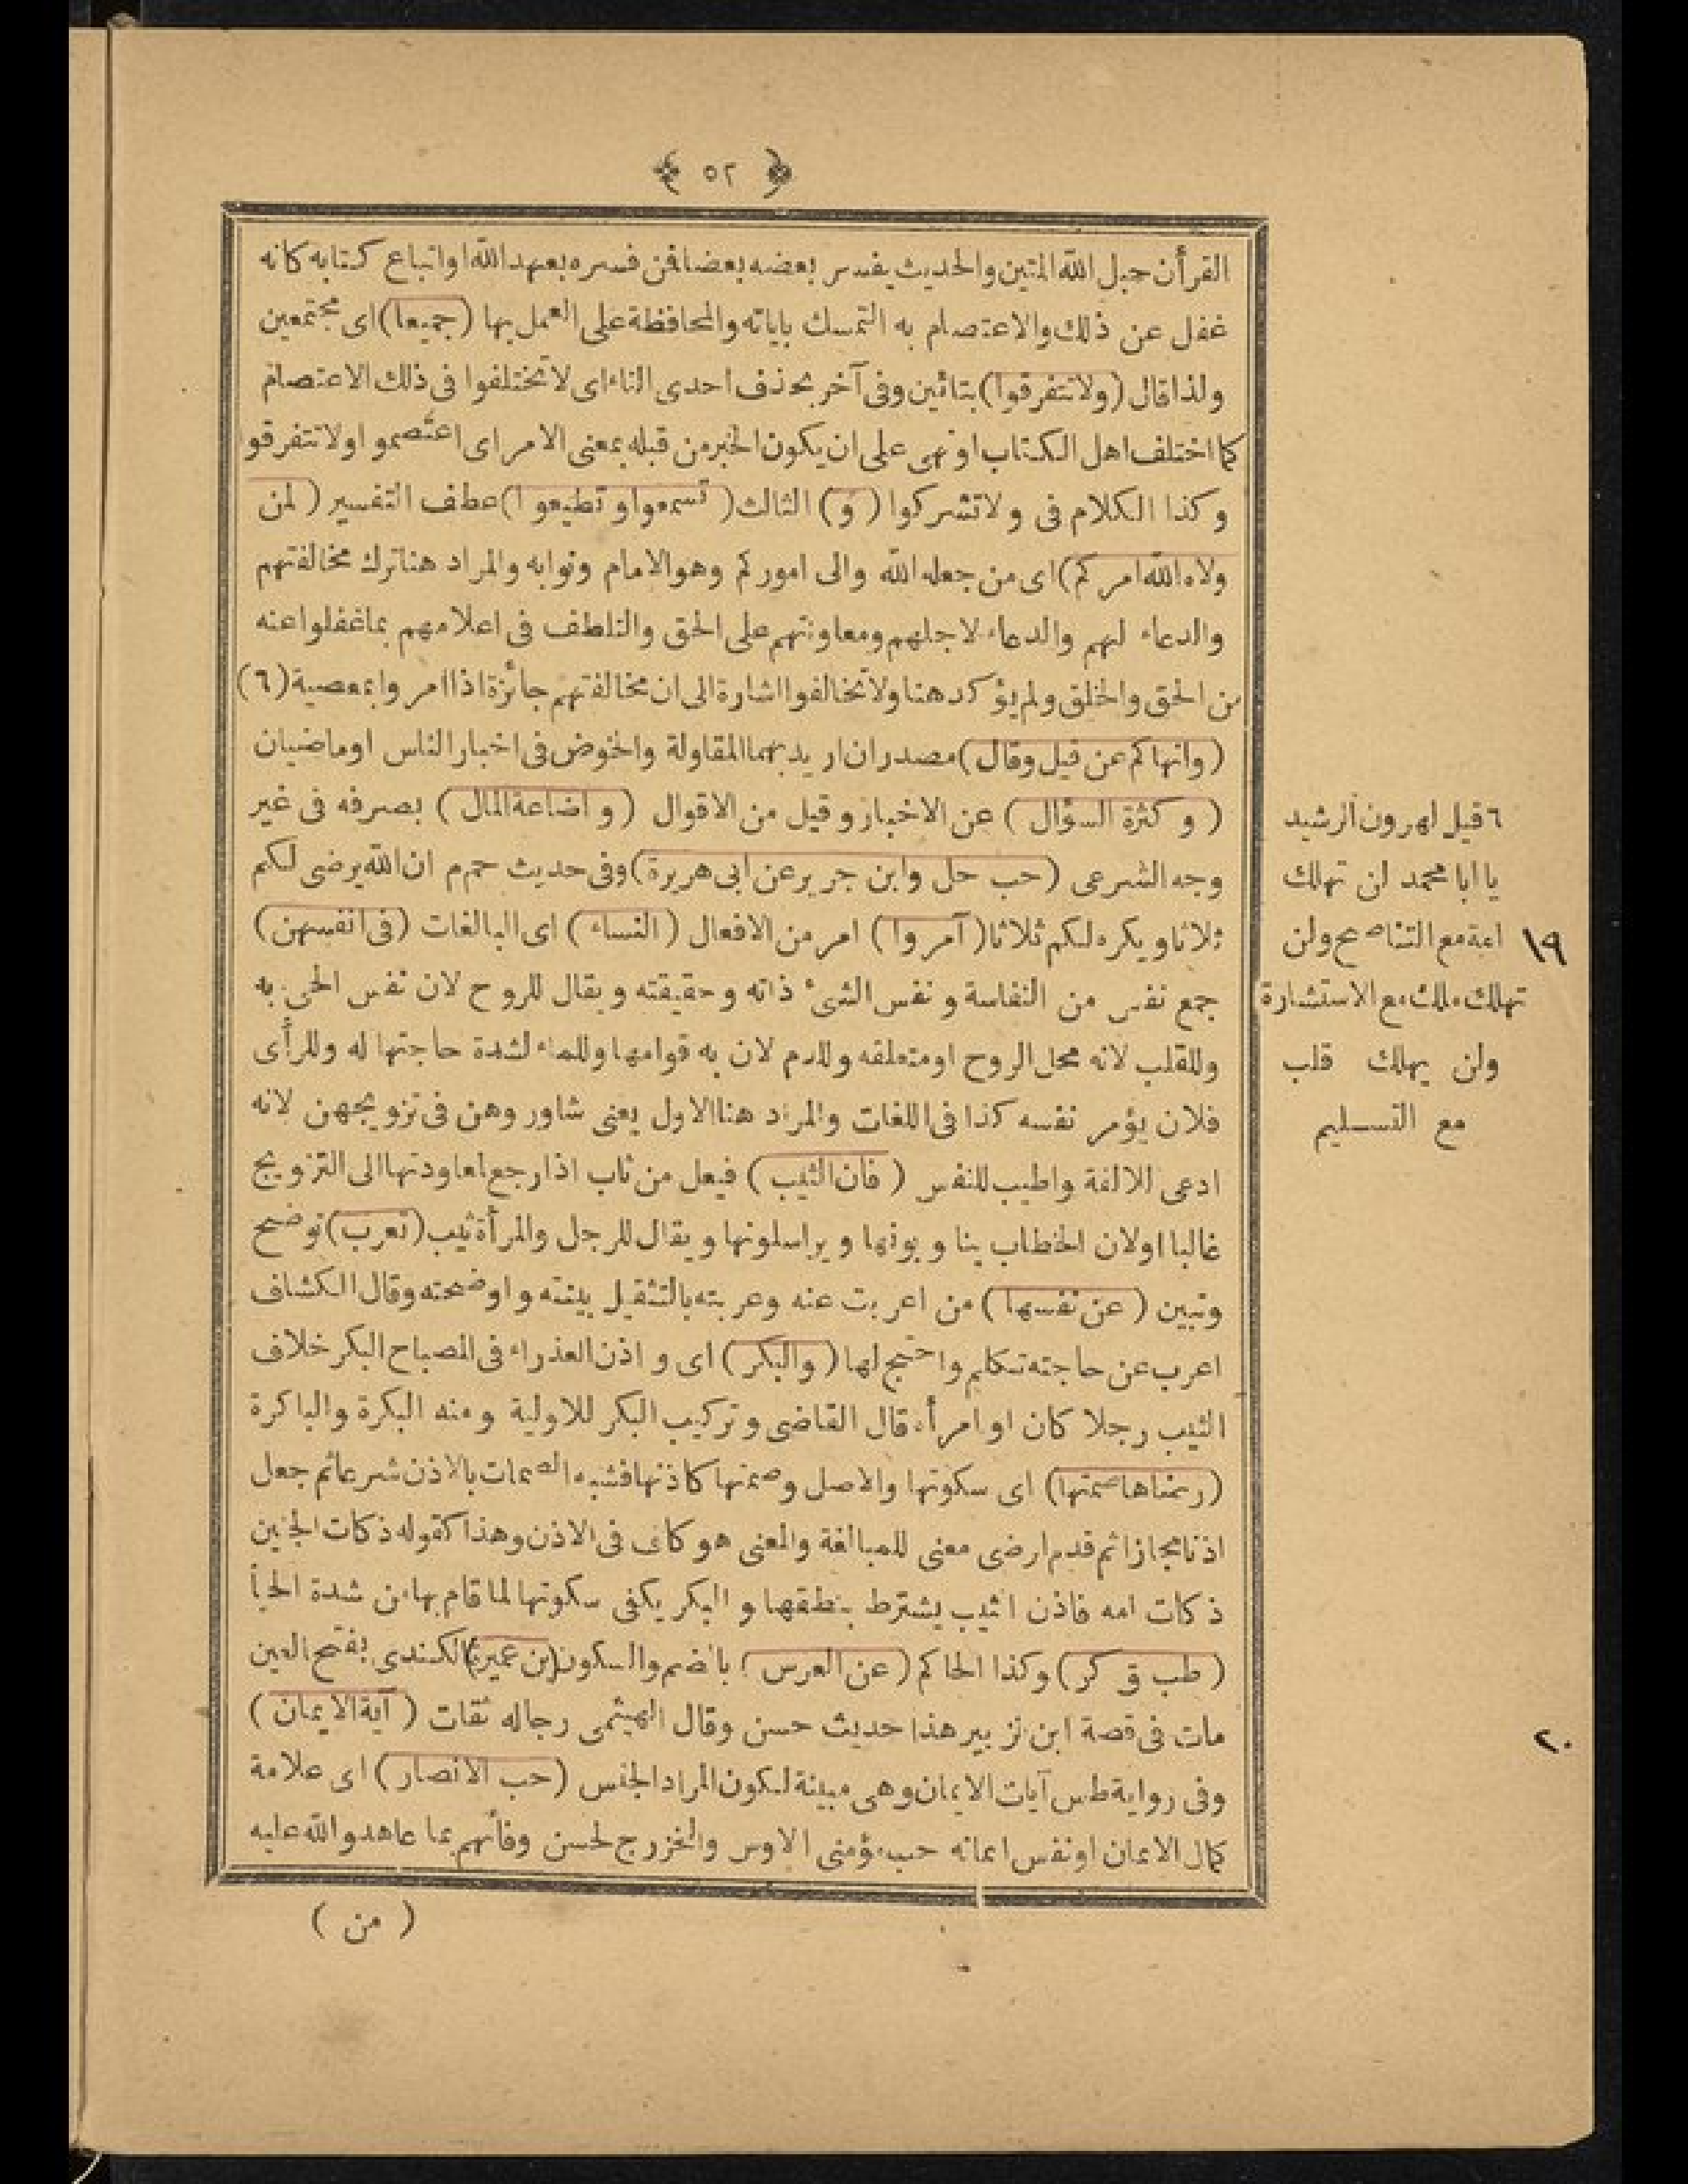 ٥٢
القرأن حبل الله المتين والحديث يفسر بعضه بعضا فمن فسره بعهد الله او اتباع كتابه كانه
غفل عن ذلك والاعتصام به التمسك باياته والمحافظة على العمل بها (جميعا) اى مجتمعين
ولذا قال (ولا تتفرقوا) بتائين وفى آخر بحذف احدى التاء اى لا تختلفوا فى ذلك الاعتصام
كما اختلف اهل الكتاب او نهى على ان يكون الخبر من قبله بمعنى الامر اى اعتصموا ولا تتفرقوا
وكذا الكلام فى ولا تشركوا (و) الثالث (تسمعوا وتطيعوا) عطف التفسير (لمن
ولاه الله امركم) اى من جعله الله والى اموركم وهو الامام ونوابه والمراد هنا ترك مخالفتهم
والدعاء لهم والدعاء لاجلهم ومعاونتهم على الحق والتلطف فى اعلامهم بما غفلوا عنه
من الحق والخلق ولم يؤكد هنا ولا تخالفوا اشارة الى ان مخالفتهم جائزة اذا امروا بمعصية (٦)
(وانهاكم عن قيل وقال) مصدران اريد بهما المقاولة والخوض فى اخبار الناس او ماضيان
(وكثرة السؤال) عن الاخبار وقيل من الاقوال (واضاعة المال) بصرفه فى غير
وجه الشرعى (حب حل وابن جرير عن ابى هريرة) وفى حديث حم م ان الله يرضى لكم
ثلاثا ويكره لكم ثلاثا (آمروا) امر من الافعال (النساء) اى البالغات (فى انفسهن)
جمع نفس من النفاسة ونفس الشئ ذاته وحقيقته ويقال للروح لان نفس الحى به
وللقلب لانه محل الروح او متعلقه وللدم لان به قوامها وللماء لشدة حاجتها له وللرأى
فلان يؤمر نفسه كذا فى اللغات والمراد هنا الاول يعنى شاوروهن فى تزويجهن لانه
ادعى للالفة واطيب للنفس (فان الثيب) فيعل من ثاب اذا رجع لمعاودتها الى التزويج
غالبا او لان الخطاب يثاوبونها ويراسلونها ويقال للرجل والمرأة ثيب (تعرب) توضح
وتبين (عن نفسها) من اعربت عنه وعربته بالتثقيل بينته واوضحته وقال الكشاف
اعرب عن حاجته تكلم واحتج لها (والبكر) اى واذن العذراء فى المصباح البكر خلاف
الثيب رجلا كان او امرأة قال القاضى وتركيب البكر للاولية ومنه البكرة والباكرة
(رضاها صمتها) اى سكوتها والاصل وصمتها كاذنها فشبه الصمات بالاذن شرعا ثم جعل
اذنا مجازا ثم قدم ارضى معنى للمبالغة والمعنى هو كاف فى الاذن وهذا كقوله ذكات الجنين
ذكات امه فاذن الثيب يشترط بنطقها والبكر يكفى سكوتها لما قام بها من شدة الحيأ
(طب ق كر) وكذا الحاكم (عن العرس) بالضم والسكون (بن عميرة) الكندى بفتح العين
مات فى قصة ابن زبير هذا حديث حسن وقال الهيثمى رجاله ثقات (آية الايمان)
وفى رواية طس آيات الايمان وهى مبينة لكون المراد الجنس (حب الانصار) اى علامة
كمال الايمان او نفس ايمانه حب مؤمنى الاوس والخزرج لحسن وفائهم بما عاهدوا الله عليه
(من)
٦ قيل لهرون الرشيد
يا ابا محمد لن تهلك
امة مع التناصح ولن
تهلك ملك مع الاستشارة
ولن يهلك قلب
مع التسليم
١٩
٢٠